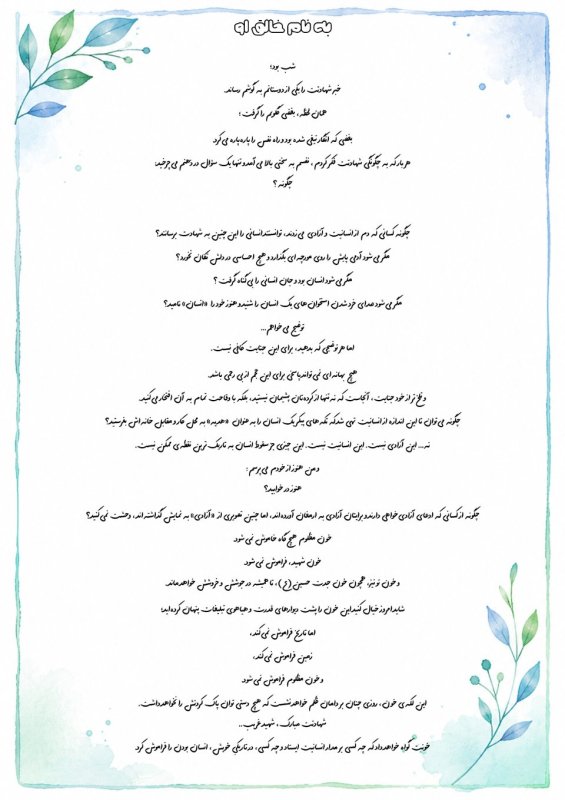 به نام خالق او
شب بود؛
خبر شهادتت را یکی از دوستانم به گوشم رساند.
همان لحظه، بغضی گلویم را گرفت ؛
بغضی که انگار تیغی شده بود و راه نفس را پاره پاره می‌کرد.
هر بار که به چگونگی شهادتت فکر کردم ، نفسم به سختی بالا می‌آمد و تنها یک سؤال در ذهنم می‌چرخید:
چگونه ؟
چگونه کسانی که دم از انسانیت و آزادی می‌زدند، توانستند انسانی را این چنین به شهادت برسانند؟
مگر می‌شود آدمی پایش را روی هر چه‌ای بگذارد و هیچ احساسی در دلش تکان نخورد؟
مگر می‌شود انسان بود و جان انسانی را بی‌گناه گرفت ؟
مگر می‌شود صدای خرد شدن استخوان‌های یک انسان را شنید و هنوز خود را «انسان» نامید؟
توضیح می‌خواهم...
اما هر توضیحی که بدهید، برای این جنایت کافی نیست.
هیچ بهانه‌ای نمی‌تواند پاسخی برای این حجم از بی‌رحمی باشد.
و تلخ‌تر از خود جنایت ، آنجاست که نه تنها از کرده‌تان پشیمان نیستید، بلکه با وقاحت تمام به آن افتخار می‌کنید.
چگونه می‌توان تا این اندازه از انسانیت تهی شد که تکه‌های پیکر یک انسان را به عنوان «هدیه» به محل کار و مقابل خانه‌اش بفرستید؟
نه... این آزادی نیست. این انسانیت نیست. این چیزی جز سقوط انسان به تاریک‌ترین نقطه‌ی ممکن نیست.
و من هنوز از خودم می‌پرسم :
هنوز در خوابید؟
چگونه از کسانی که ادعای آزادی خواهی دارند و برایتان آزادی به ارمغان آورده‌اند، اما چنین تصویری از «آزادی» به نمایش گذاشته‌اند، وحشت نمی‌کنید؟
خون مظلوم هیچ گاه خاموش نمی‌شود.
خون شهید، فراموش نمی‌شود.
و خون تو نیز، همچون خون جدت حسین (ع) ، تا همیشه در جوشش و خروشش خواهد ماند.
شاید امروز خیال کنید این خون را پشت دیوارهای قدرت و هیاهوی تبلیغات پنهان کرده‌اید؛
اما تاریخ فراموش نمی‌کند،
زمین فراموش نمی‌کند،
و خون مظلوم فراموش نمی‌شود.
این لکه‌ی خون، روزی چنان بر دامان ظلم خواهد نشست که هیچ دستی توان پاک کردنش را نخواهد داشت.
شهادتت مبارک، شهید غریب...
خونت گواه خواهد داد که چه کسی بر مدار انسانیت ایستاد و چه کسی، در تاریکی خویش، انسان بودن را فراموش کرد.